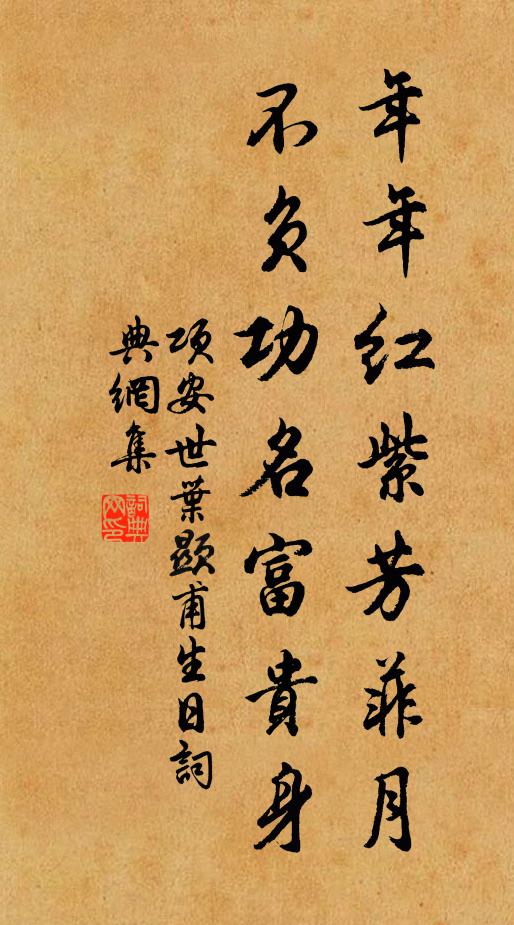 年年紅紫芳菲月
不負功名富貴身
項安世葉顯甫生日詞
典網集
詞典
网印